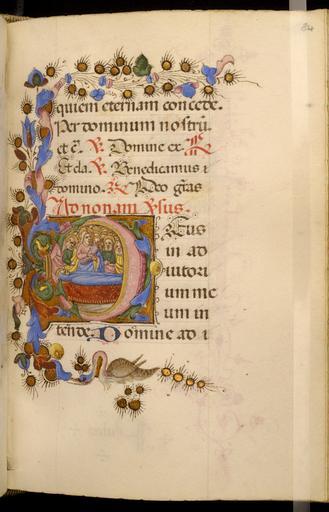 84
quiem eternam concede.
Per dominum nostrũ.
et c̃. ℣. Domine ex. ℟
Et cla. ℣. Benedicamus ⁊
domino. ℟ Deo gr̃as
Ad nonam ℣sus.
DEus
in ad
iutori
um me
um in
tende. Domine ad ı